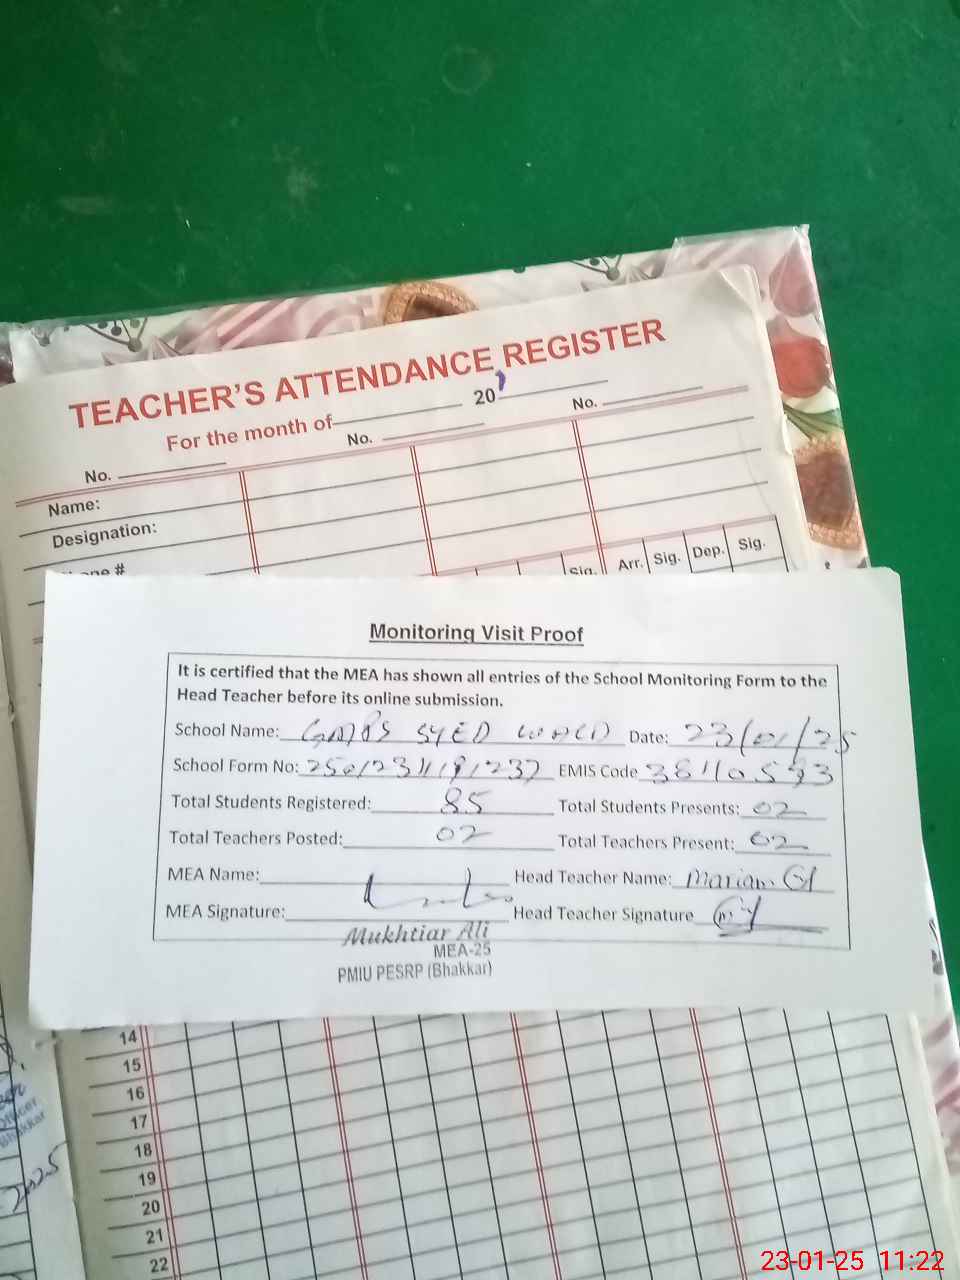 TEACHER'S ATTENDANCE REGISTER
For the month of 20
No. No. No.
Name:
Designation:
Sig. Arr. Sig. Dep. Sig.
Monitoring Visit Proof
It is certified that the MEA has shown all entries of the School Monitoring Form to the
Head Teacher before its online submission.
School Name: SYED Date: 23/01/25
School Form No: EMIS Code 38110593
Total Students Registered: 85 Total Students Presents: 02
Total Teachers Posted: 02 Total Teachers Present: 02
MEA Name: Head Teacher Name: Mariam
MEA Signature: Head Teacher Signature
Mukhtiar Ali
MEA-25
PMIU PESRP (Bhakkar)
14
15
16
17
18
19
20
21
22
Bhakkar
2025
23-01-25 11:22